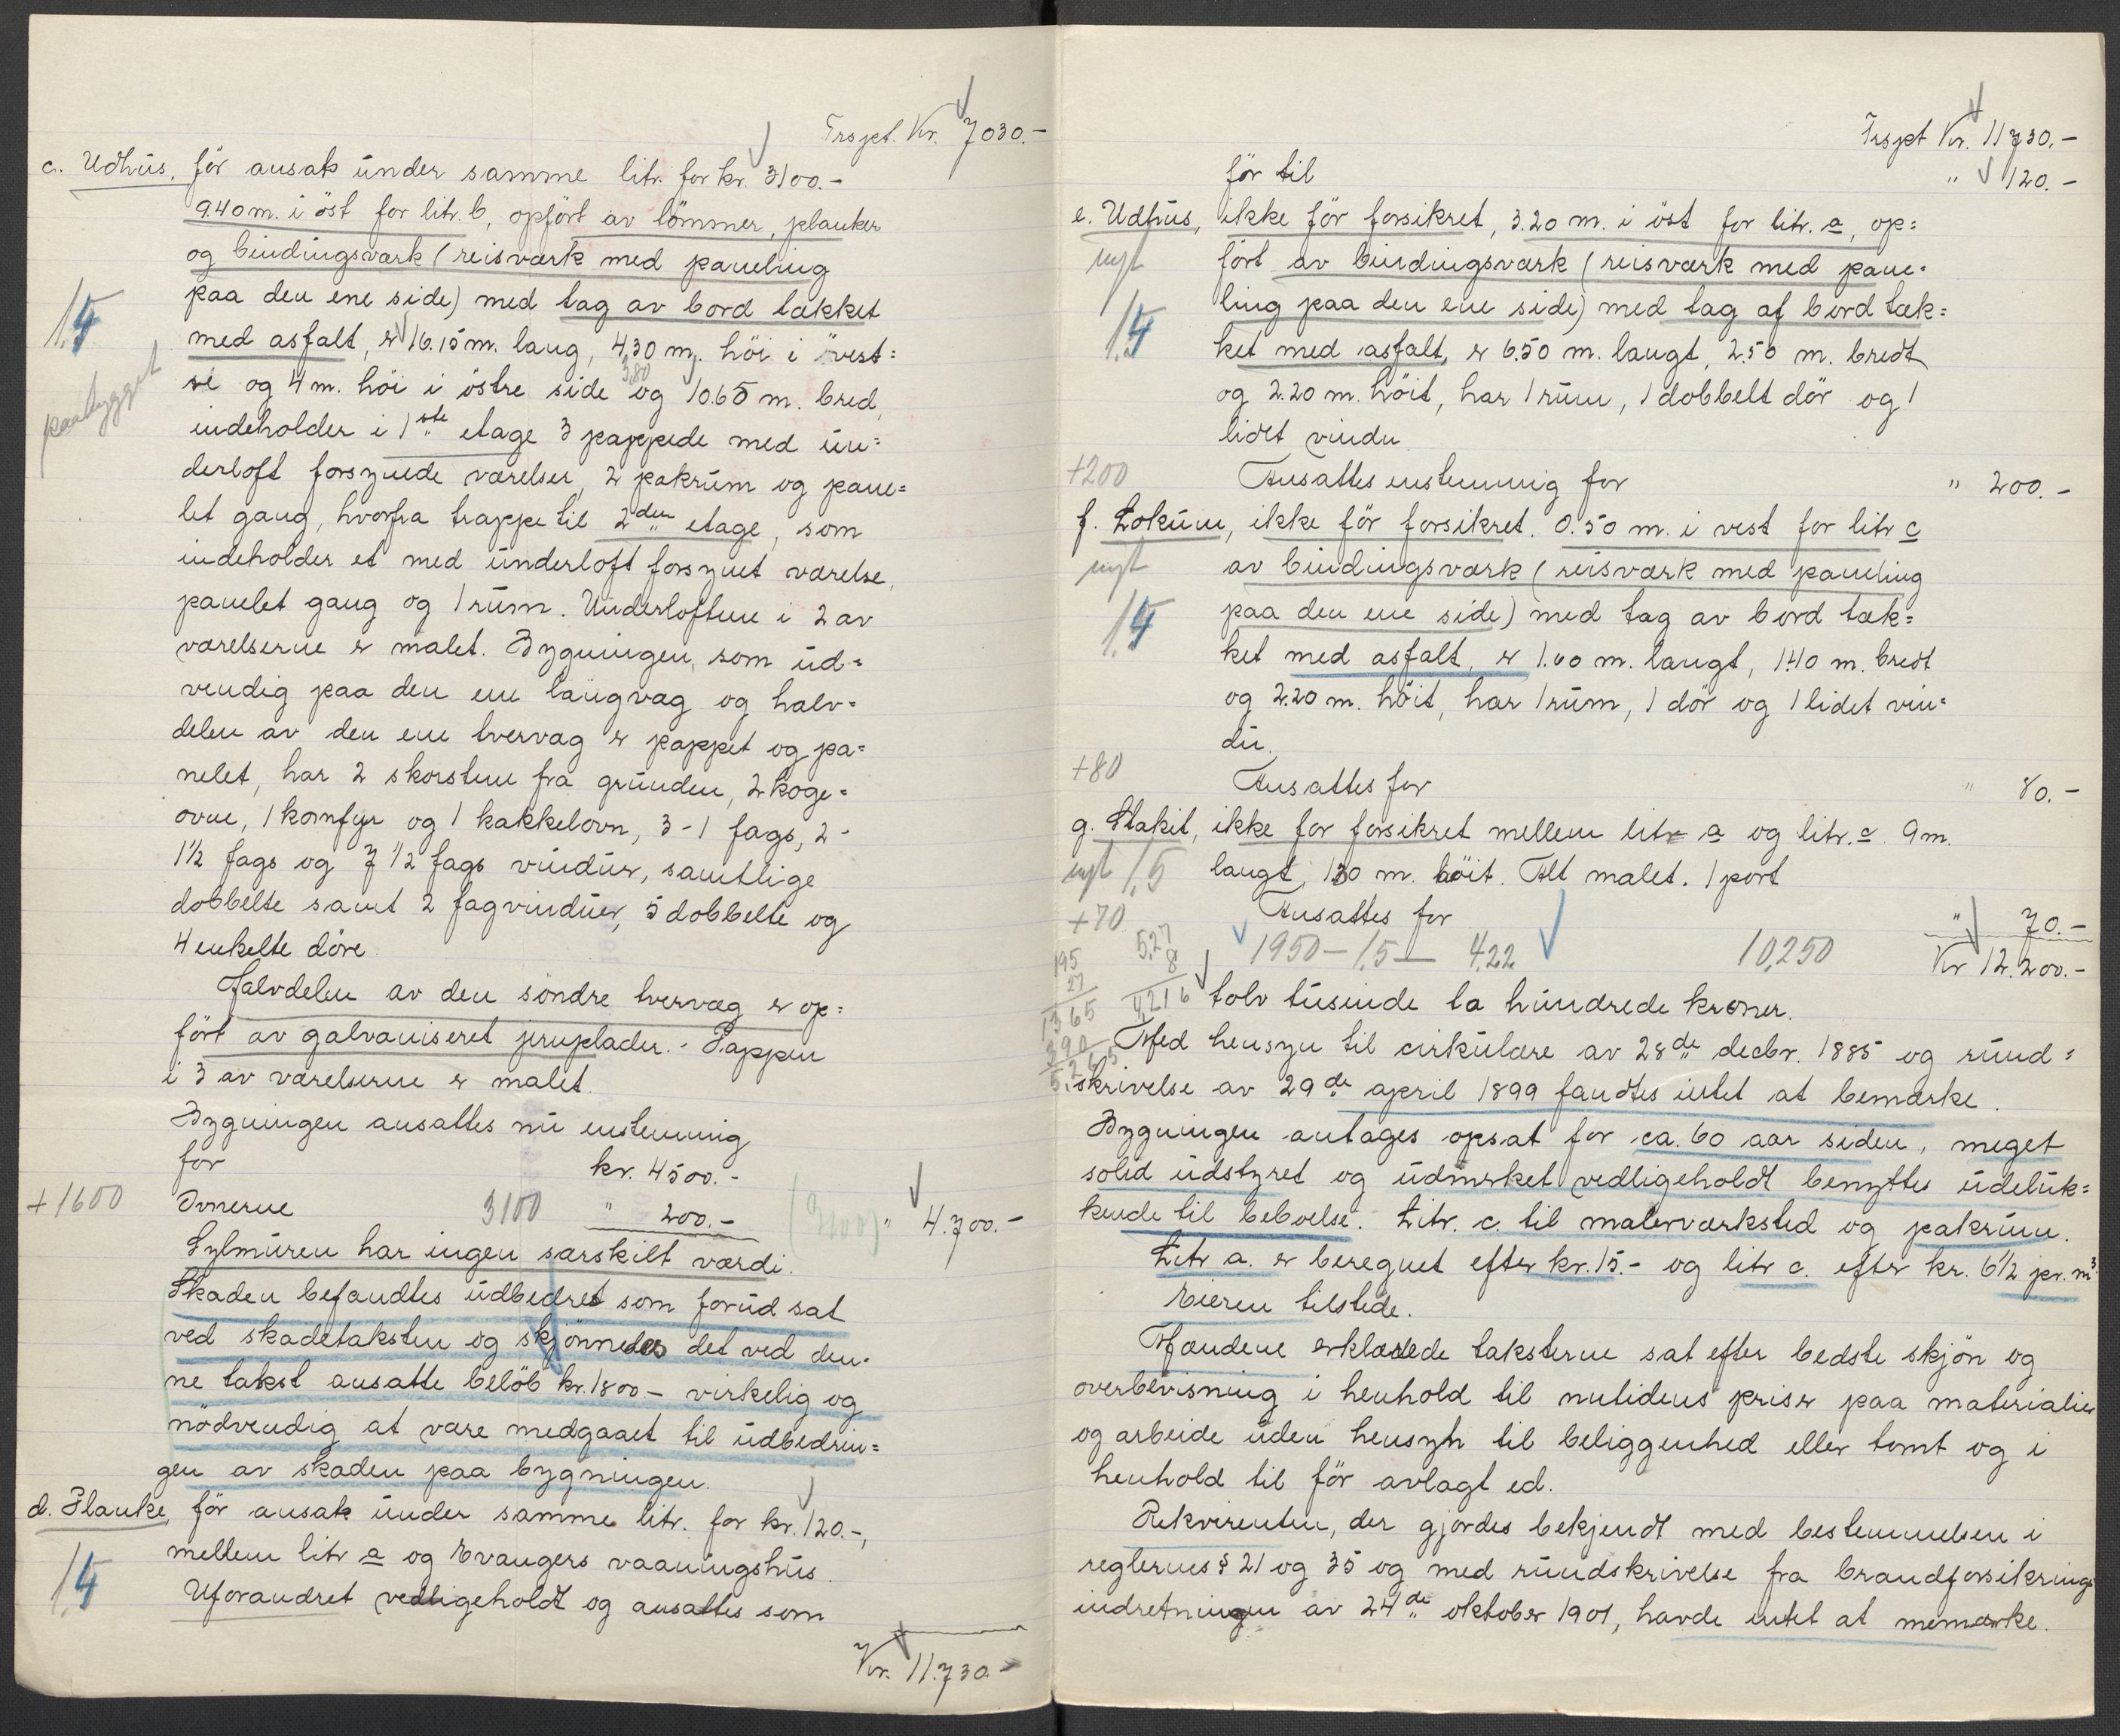 Trspt. Kr. 7030.-
c. Udhus, för ansat under samme litr. for kr. 3100.-
9.40 m. i öst for litr. b, opfört av tömmer, planker
og bindingsværk (reisværk med paneling
paa den ene side) med tag av bord tækket
1.5
med asfalt, er 16.15 m. lang, 4.30 m. höi i vest-
paabygget
re og 4 m. höi i östre side og 10.65 m. bred,
3.80
indeholder i 1ste etage 3 pappede med un=
derloft forsynede værelser, 2 pakrum og pane=
let gang, hvorfra trappe til 2den etage, som
indeholder et med underloft forsynet værelse,
panelet gang og 1 rum. Underloftene i 2 av
værelserne er malet. Bygningen, som ud=
vendig paa den ene langvæg og halv=
delen av den ene tvervæg er pappet og pa=
nelet, har 2 skorstene fra grunden, 2 koge=
ovne, 1 komfyr og 1 kakkelovn, 3-1 fags, 2-
1½ fags og 7 ½ fags vinduer, samtlige
dobbelte samt 2 fagvinduer, 5 dobbelte og
4 enkelte döre.
Halvdelen av den söndre tvervæg er op=
fört av galvaniseret jernplader. - Pappen
i 3 av værelserne er malet.
Bygningen ansattes nu enstemmig
for kr. 4500.-
+1600 Ovnerne 3100 " 200.- " 4.700.-
Sylmuren har ingen særskilt værdi.
Skaden befandtes udbedret som forud sat
ved skadetaksten og skjönnedes det ved den=
ne takst ansatte belöb kr. 1800- virkelig og
nödvendig at være medgaaet til udbedrin=
gen av skaden paa bygningen.
d. Planke, för ansat under samme litr. for kr. 120.-,
mellem litr a og Evangers vaaningshus.
1.5
Uforandret vedligeholdt og ansattes som
Kr. 11.730.-
Trspt Kr. 11730.-
för til " 120.-
e. Udhus, ikke för forsikret, 3.20 m. i öst for litr. a, op=
nyt
fört av bindingsværk (reisværk med pane=
1.5
ling paa den ene side) med tag af bord tæk=
ket med asfalt, er 6.50 m. langt, 2.50 m. bredt
og 2.20 m. höit, har 1 rum, 1 dobbelt dör og 1
lidet vindu.
+200 Ansattes enstemmig for " 200.-
f. Lokum, ikke för forsikret. 0.50 m. i vest for litr c
nyt
av bindingsværk (reisværk med paneling
1.5
paa den ene side) med tag av bord tæk=
ket med asfalt, er 1.60 m. langt, 1.40 m. bredt
og 2.20 m. höit, har 1 rum, 1 dör og 1 lidet vin=
du.
+80 Ansattes for " 80.-
g. Stakit, ikke for forsikret mellem litr a og litr. c. 9 m.
nyt 1.5
langt, 1.30 m. höit. Alt malet. 1 port
+70 Ansattes for " 70.-
1950 - 1.5 - 4.22 10,250 Kr 12.200.-
527
8
4216
195
27
1365
390
5.265
tolv tusinde to hundrede kroner.
Med hensyn til cirkulære av 28de decbr. 1885 og rund=
skrivelse av 29de april 1899 fandtes intet at bemærke.
Bygningen antages opsat for ca. 60 aar siden, meget
solid udstyret og udmerket vedligeholdt benyttes udeluk=
kende til bebvelse. Litr. c. til malerværksted og pakrum.
Litr a. er beregnet efter kr. 15.- og litr c. efter kr. 6½ pr. m³.
Eieren tilstede.
Mændene erklærede taksterne sat efter bedste skjön og
overbevisning i henhold til nutidens priser paa materialier
og arbeide uden hensyn til beliggenhed eller tomt og i
henhold til för avlagt ed.
Rekvirenten, der gjordes bekjendt med bestemmelsen i
reglernes § 21 og 35 og med rundskrivelse fra brandforsikrings
indretningen av 24de oktober 1901, havde intet at memærke.